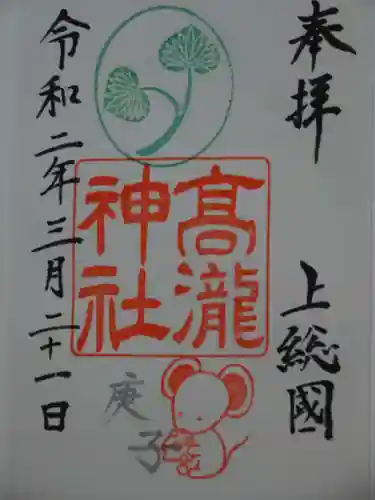 奉拝
上総國
髙瀧
神社
庚子
令和二年三月二十一日